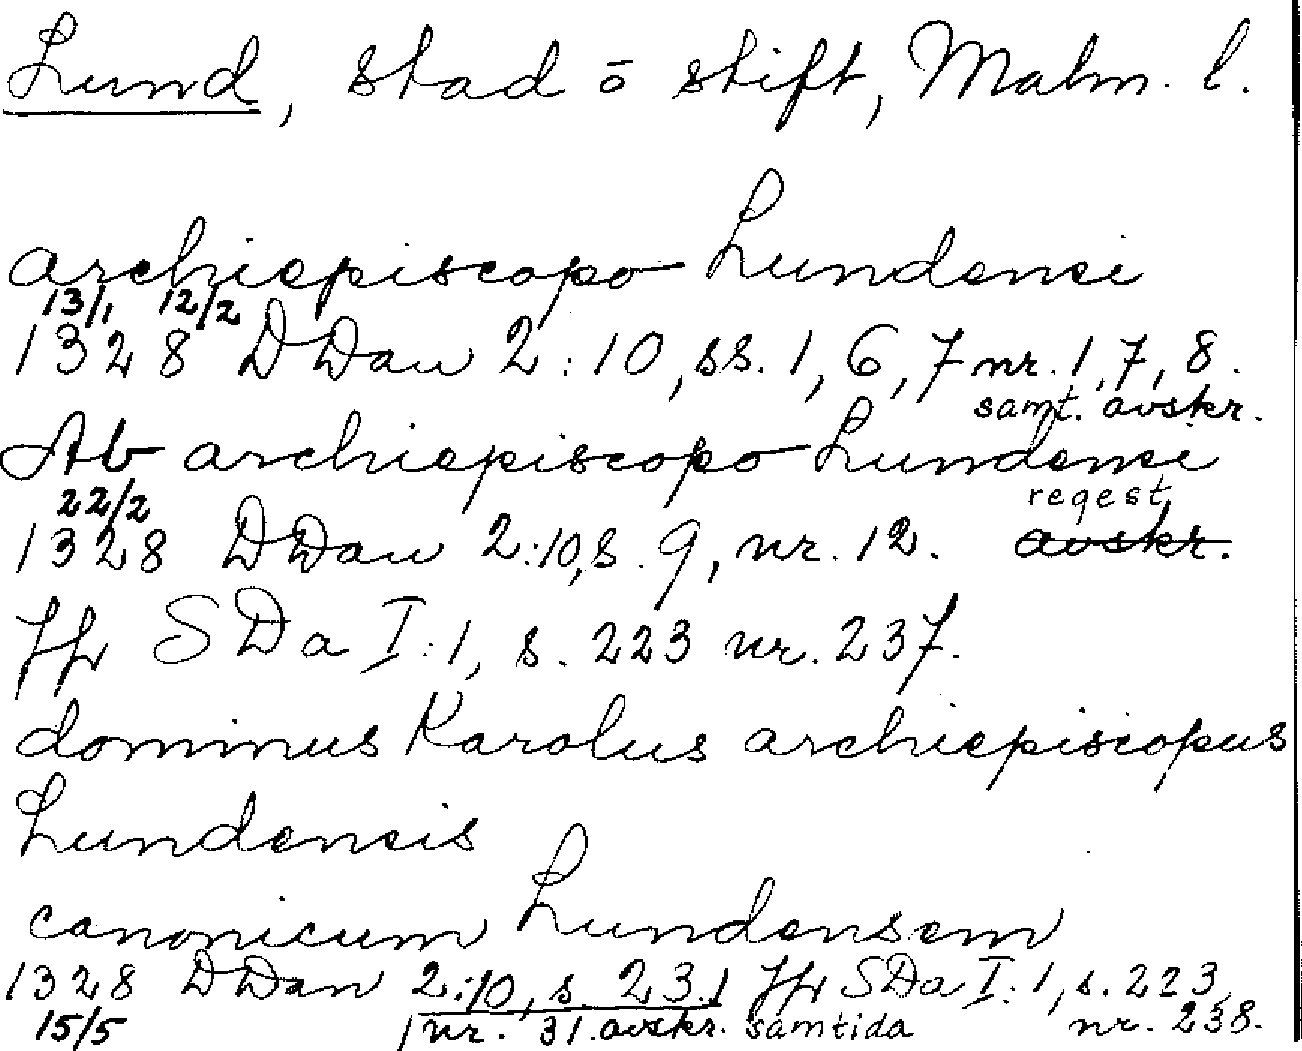 Lund, stad ō stift, Malm. l.
archiepiscopo Lundensi
13/1 12/2
1328 DDan 2:10, ss. 1, 6, 7 nr. 1, 7, 8.
samt. avskr.
Ab archiepiscopo Lundensi
22/2 regest
1328 DDan 2:10, s. 9, nr. 12. avskr.
Jfr SDa I:1, s. 223 nr. 237.
dominus Karolus archiepiscopus
Lundensis
canonicum Lundensem
1328 DDan 2:10, s. 23. Jfr SDa I:1, s. 223,
15/5 nr. 31. avskr. samtida nr. 238.